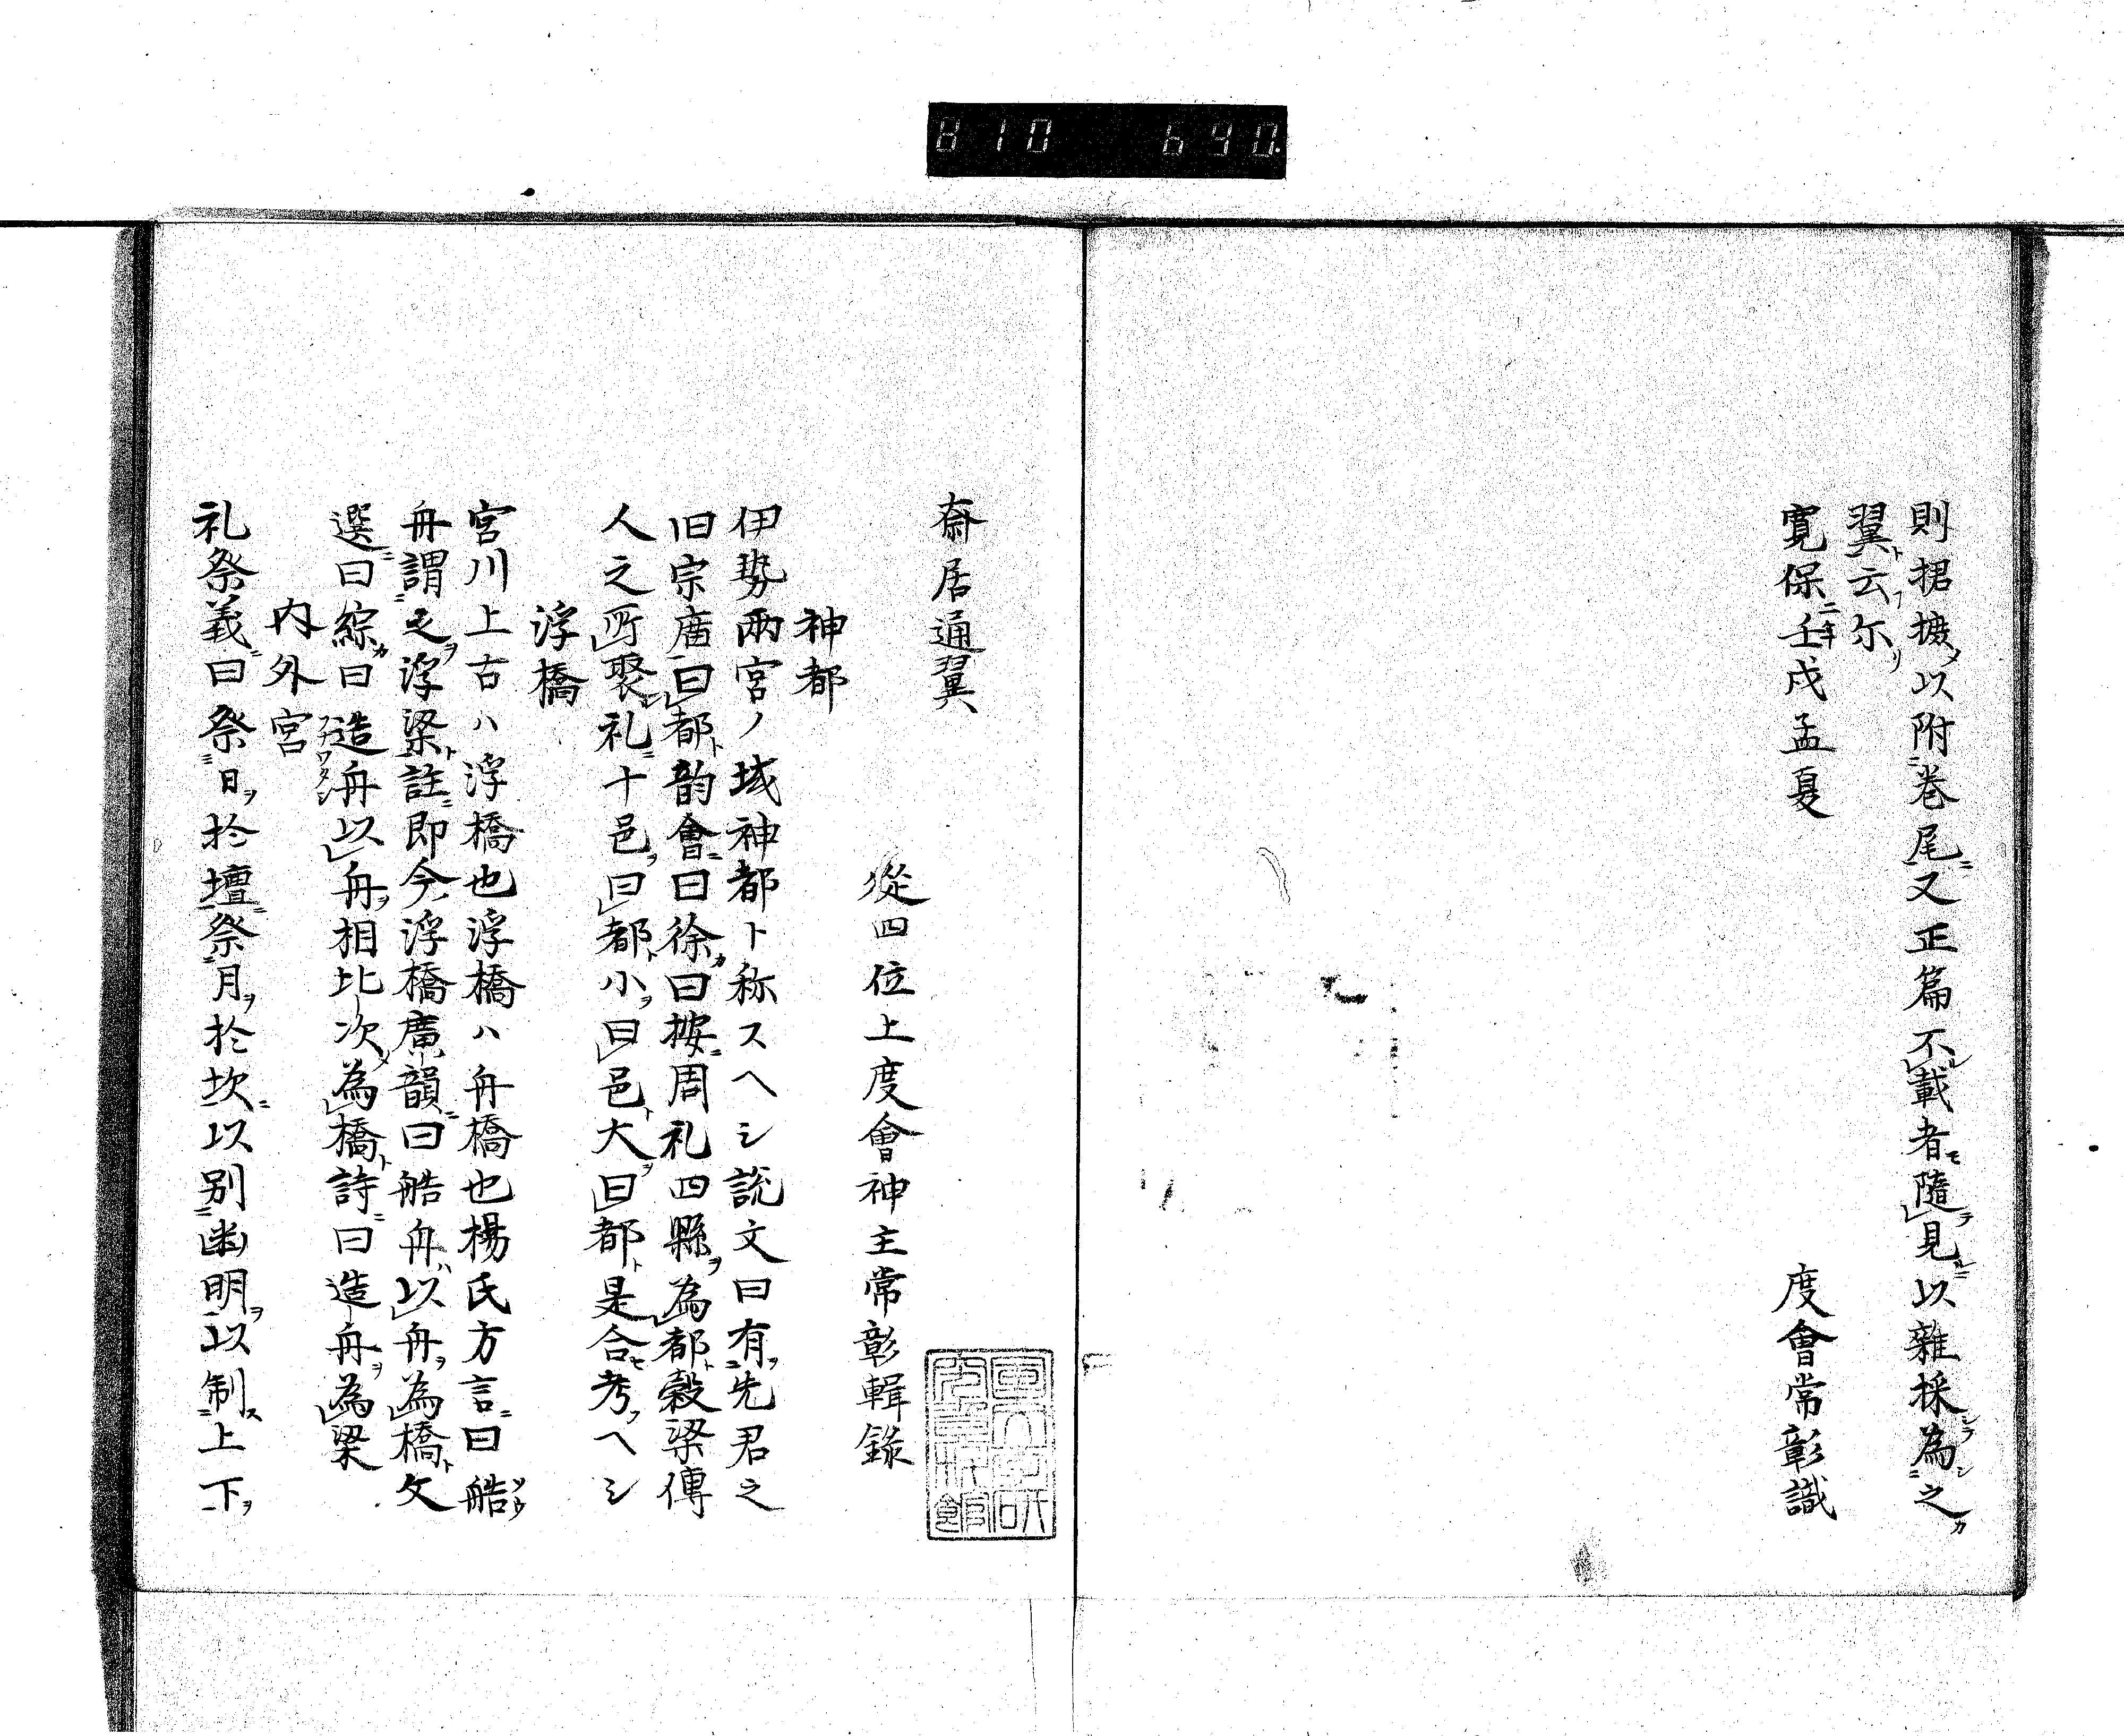 810 640.
則捃摭以附巻尾又正篇不載者隨見以雜採為之
翼云尓
寛保二年壬戌孟夏
度會常彰識
齋居通翼
從四位上度會神主常彰輯錄
神都
伊勢兩宮ノ域神都ト称スヘシ説文曰有先君之
旧宗廣曰都韵會曰徐曰按周礼四縣為都穀梁傳
人之所聚礼十邑曰都小曰邑大曰都是合考ヘシ
浮橋
宮川上古ハ浮橋也浮橋ハ舟橋也楊氏方言曰艁
舟謂之浮梁註即今浮橋廣韻曰艁舟以舟為橋文
選曰綜曰造舟以舟相比次為橋詩曰造舟為梁
内外宮
礼祭義曰祭日於壇祭月於坎以別幽明以制上下